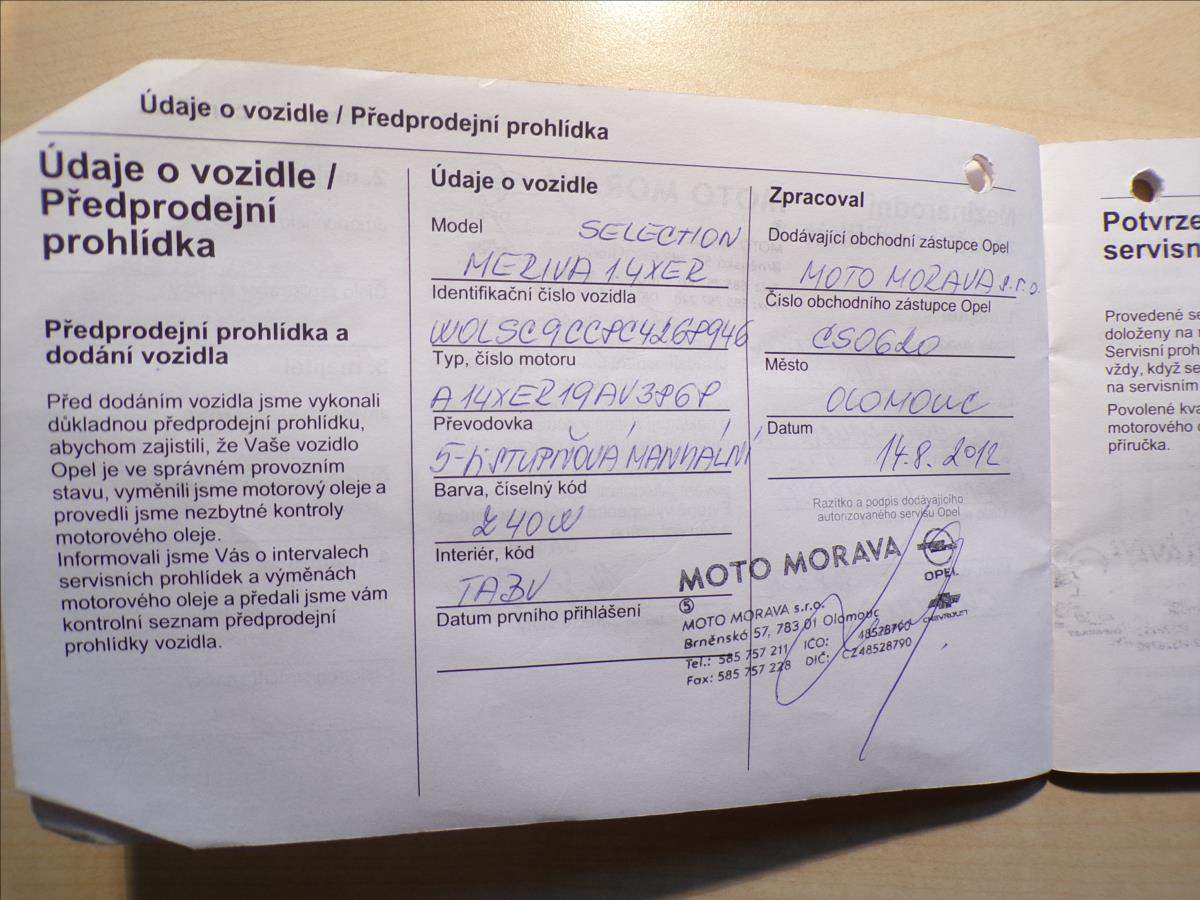 Údaje o vozidle / Předprodejní prohlídka
Údaje o vozidle /
Předprodejní
prohlídka
Předprodejní prohlídka a
dodání vozidla
Před dodáním vozidla jsme vykonali
důkladnou předprodejní prohlídku,
abychom zajistili, že Vaše vozidlo
Opel je ve správném provozním
stavu, vyměnili jsme motorový oleje a
provedli jsme nezbytné kontroly
motorového oleje.
Informovali jsme Vás o intervalech
servisních prohlídek a výměnách
motorového oleje a předali jsme vám
kontrolní seznam předprodejní
prohlídky vozidla.
Údaje o vozidle
Model
SELECTION
MERIVA 1.4XER
Identifikační číslo vozidla
W0LSC9CCPC4268946
Typ, číslo motoru
A14XER19AV3868
Převodovka
5-TI STUPŇOVÁ MANUÁLNÍ
Barva, číselný kód
Z40W
Interiér, kód
TA3V
Datum prvního přihlášení
Zpracoval
Dodávající obchodní zástupce Opel
MOTO MORAVA s.r.o.
Číslo obchodního zástupce Opel
CS0620
Město
OLOMOUC
Datum
14.8.2012
Razítko a podpis dodávajícího
autorizovaného servisu Opel
MOTO MORAVA
OPEL
CHEVROLET
5
MOTO MORAVA s.r.o.
Brněnská 57, 783 01 Olomouc
Tel.: 585 757 211 IČO: 48528790
Fax: 585 757 228 DIČ: CZ48528790
Potvrze
servisn
Provedené se
doloženy na
Servisní proh
vždy, když se
na servisním
Povolené kva
motorového o
příručka.